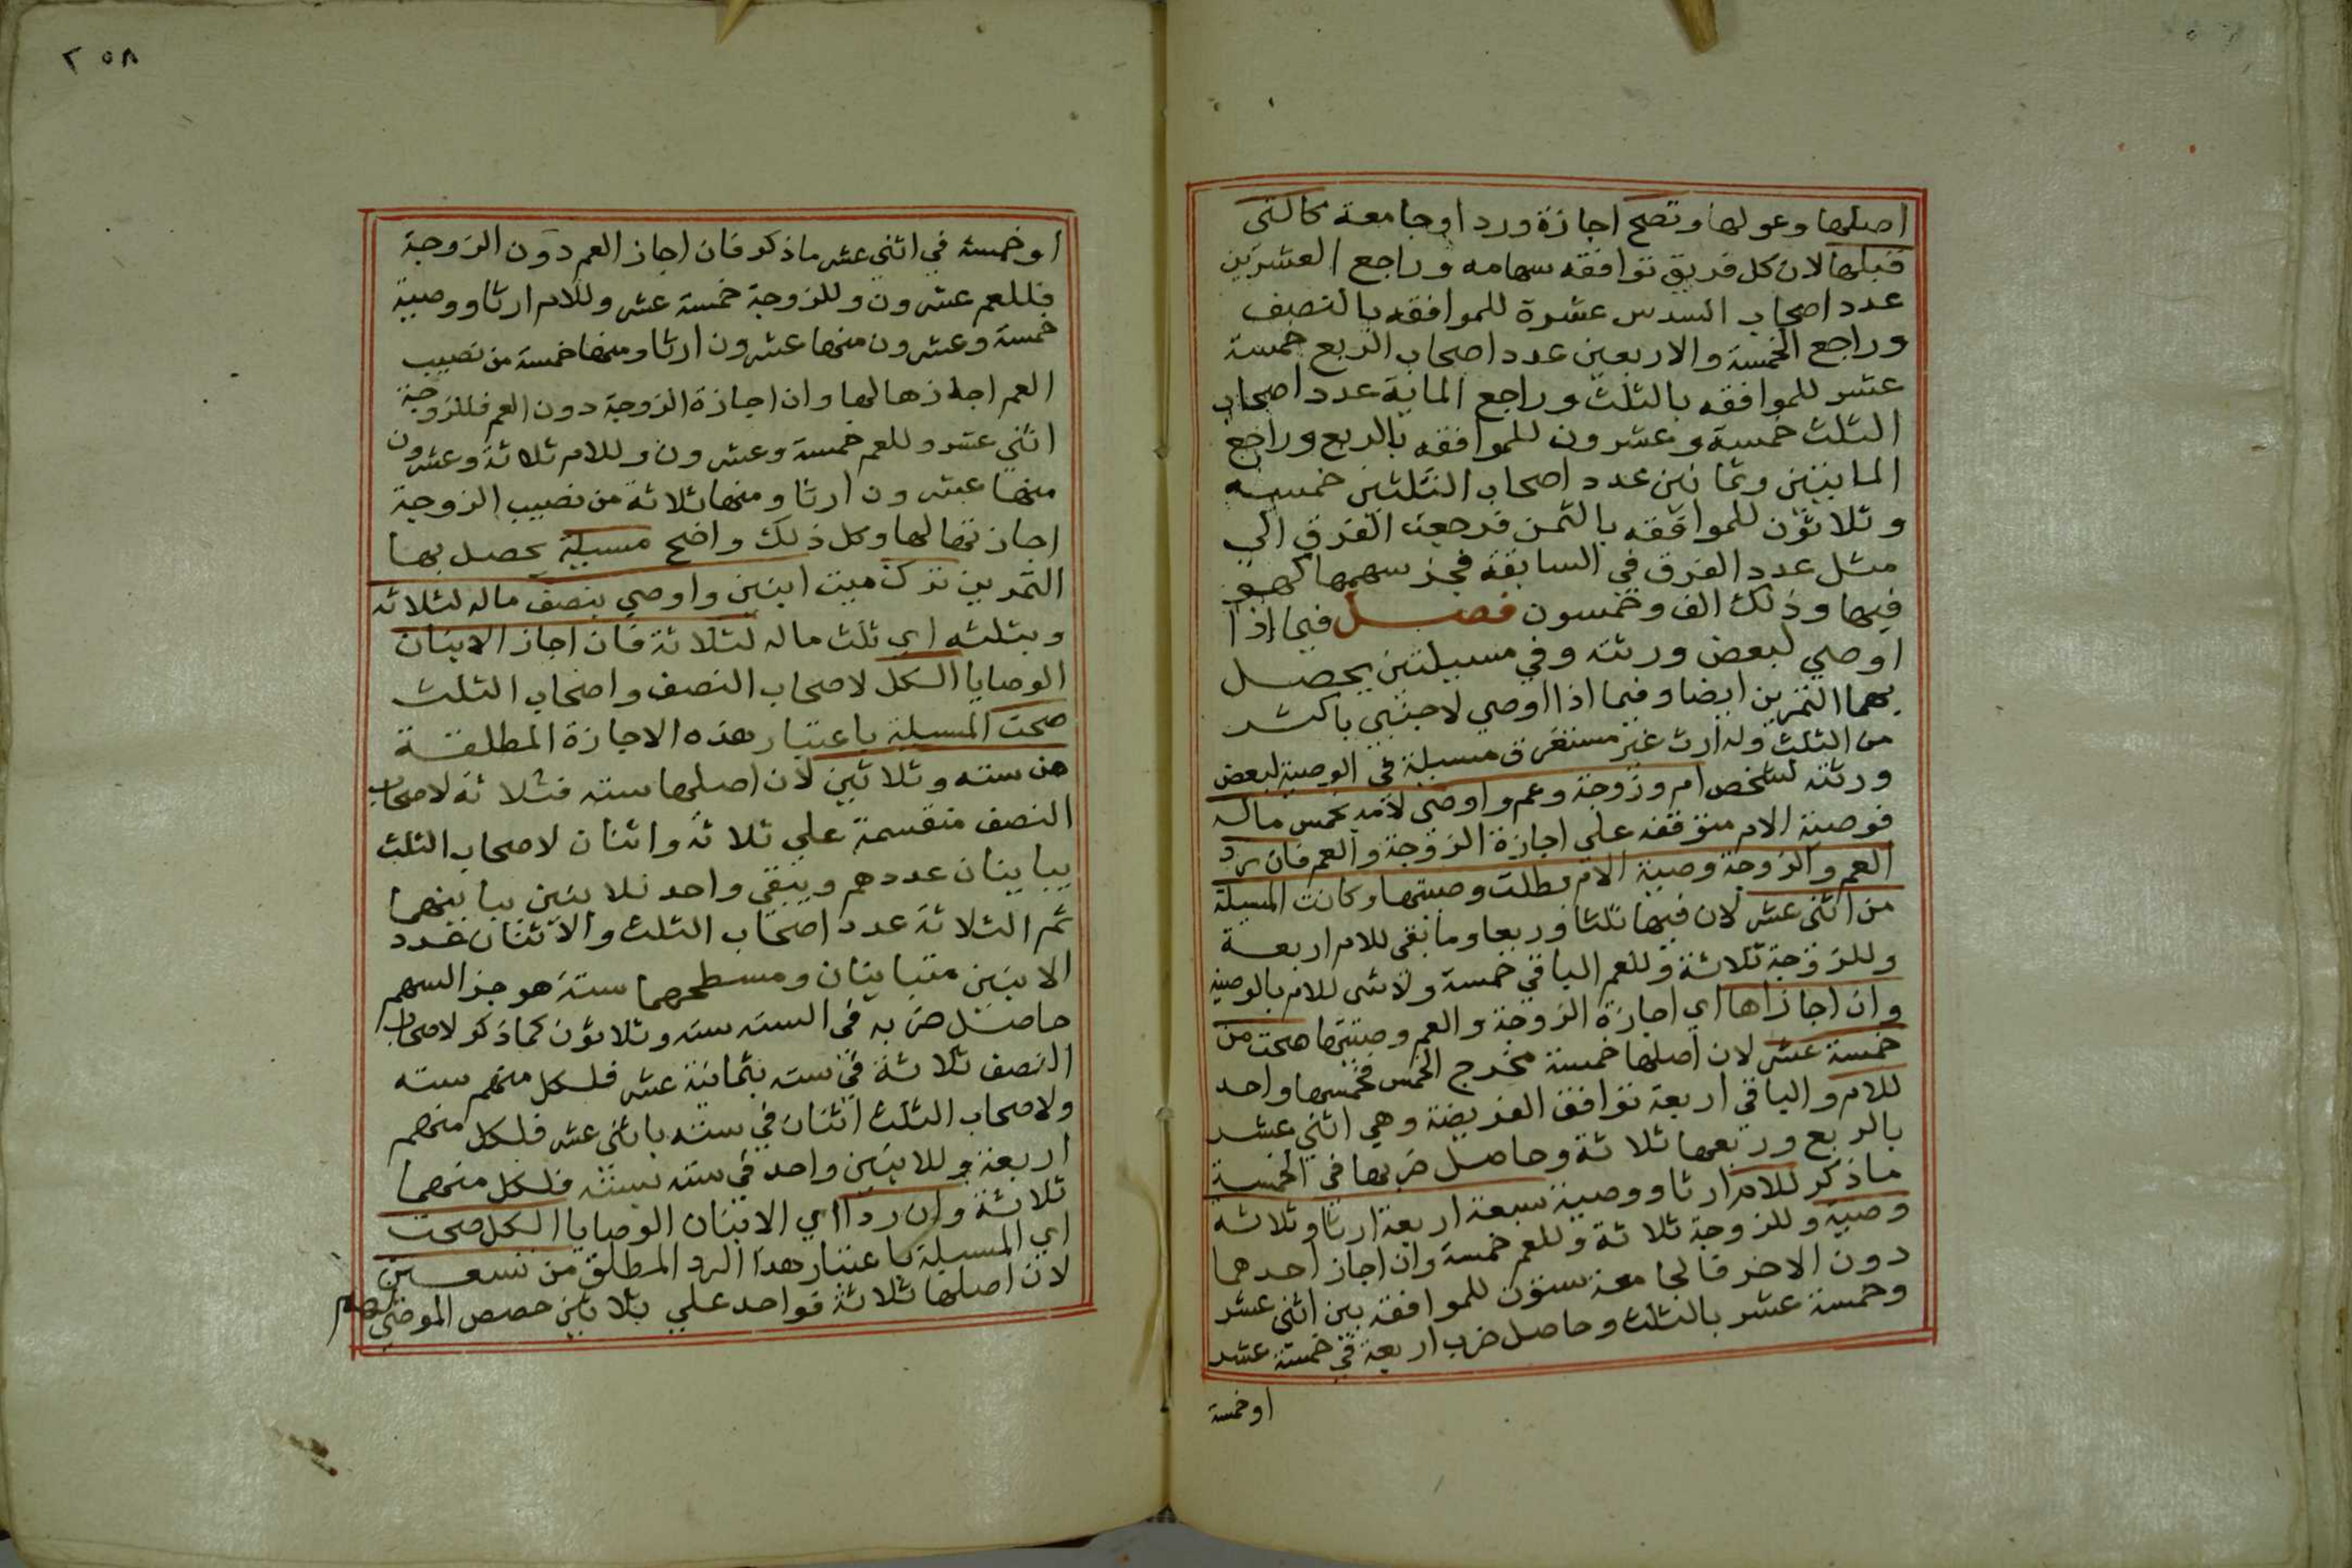 اصلها وعولها وتصح اجازة وردا وجامعة كالتى
قبلها لان كل فريق توافقه سهامه وراجع العشرين
عدد اصحاب السدس عشرة للموافقه بالنصف
وراجع الخمسة والاربعين عدد اصحاب الربع خمسة
عشر للموافقه بالثلث وراجع الماية عدد اصحاب
الثلث خمسة وعشرون للموافقه بالربع وراجع
المايتين وثمانين عدد اصحاب الثلثين خمسه
وثلاثون للموافقه بالثمن فرجعت الفرق الي
مثل عدد الفرق في السابقة فجز سهمها كهو
فيها وذلك الف وخمسون فصل فيما اذا
اوصي لبعض ورثته وفي مسيلتين يحصل
بهما التمرين ايضا وفيما اذا اوصي لاجنبي باكثر
من الثلث وله ارث غير مستغرق مسيلة في الوصية لبعض
ورثته لشخص ام وزوجة وعم واوصى لامه بخمس ماله
فوصية الام متوقفه على اجازة الزوجة والعم فان رد
العم والزوجة وصية الام بطلت وصيتها وكانت المسيلة
من اثنى عشر لان فيها ثلثا وربعا وما بقى للام اربعة
وللزوجة ثلاثة وللعم الباقي خمسة ولا شى للام بالوصية
وان اجازاها اي اجازة الزوجة والعم وصيتها صحت من
خمسة عشر لان اصلها خمسة مخرج الخمس فخمسها واحد
للام والباقي اربعة توافق الفريضة وهي اثني عشر
بالربع وربعها ثلاثة وحاصل ضربها في الخمسة
ماذكر للام ارثا ووصية سبعة اربعة ارثا وثلاثه
وصية وللزوجة ثلاثة وللعم خمسة وان اجاز احدهما
دون الاخر فالجامعة ستون للموافقة بين اثنى عشر
وخمسة عشر بالثلث وحاصل ضرب اربعة في خمسة عشر
او خمسة
٢٥٨
او خمسة في اثنى عشر ماذكر فان اجاز العم دون الزوجة
فللعم عشرون وللزوجة خمسة عشر وللام ارثا ووصية
خمسة وعشرون منها عشرون ارثا ومنها خمسة من نصيب
العم اجازها لها وان اجازة الزوجة دون العم فللزوجة
اثني عشر وللعم خمسة وعشرون وللام ثلاثة وعشرون
منها عشرون ارثا ومنها ثلاثة من نصيب الزوجة
اجازتها لها وكل ذلك واضح مسيلة يحصل بها
التمرين ترك ميت ابنين واوصي بنصف ماله لثلاثه
وبثلثه اي ثلث ماله لثلاثة فان اجاز الابنان
الوصايا الكل لاصحاب النصف واصحاب الثلث
صحت المسيلة باعتبار هذه الاجازة المطلقة
من سته وثلاثين لان اصلها سته فثلاثة لاصحاب
النصف منقسمة علي ثلاثة واثنان لاصحاب الثلث
يباينان عددهم ويبقي واحد للابنين يباينهما
ثم الثلاثة عدد اصحاب الثلث والاثنان عدد
الابنين متباينان ومسطحهما ستة هو جز السهم
حاصل ضربه في السته سته وثلاثون كما ذكر لاصحاب
النصف ثلاثة في سته بثمانية عشر فلكل منهم سته
ولاصحاب الثلث اثنان في سته باثنى عشر فلكل منهم
اربعة وللابنين واحد في سته بسته فلكل منهما
ثلاثة وان ردا اي الابنان الوصايا الكل صحت
اي المسيلة باعتبار هذا الرد المطلق من تسعين
لان اصلها ثلاثة فواحد علي ثلاثين حصص الموصي لهم